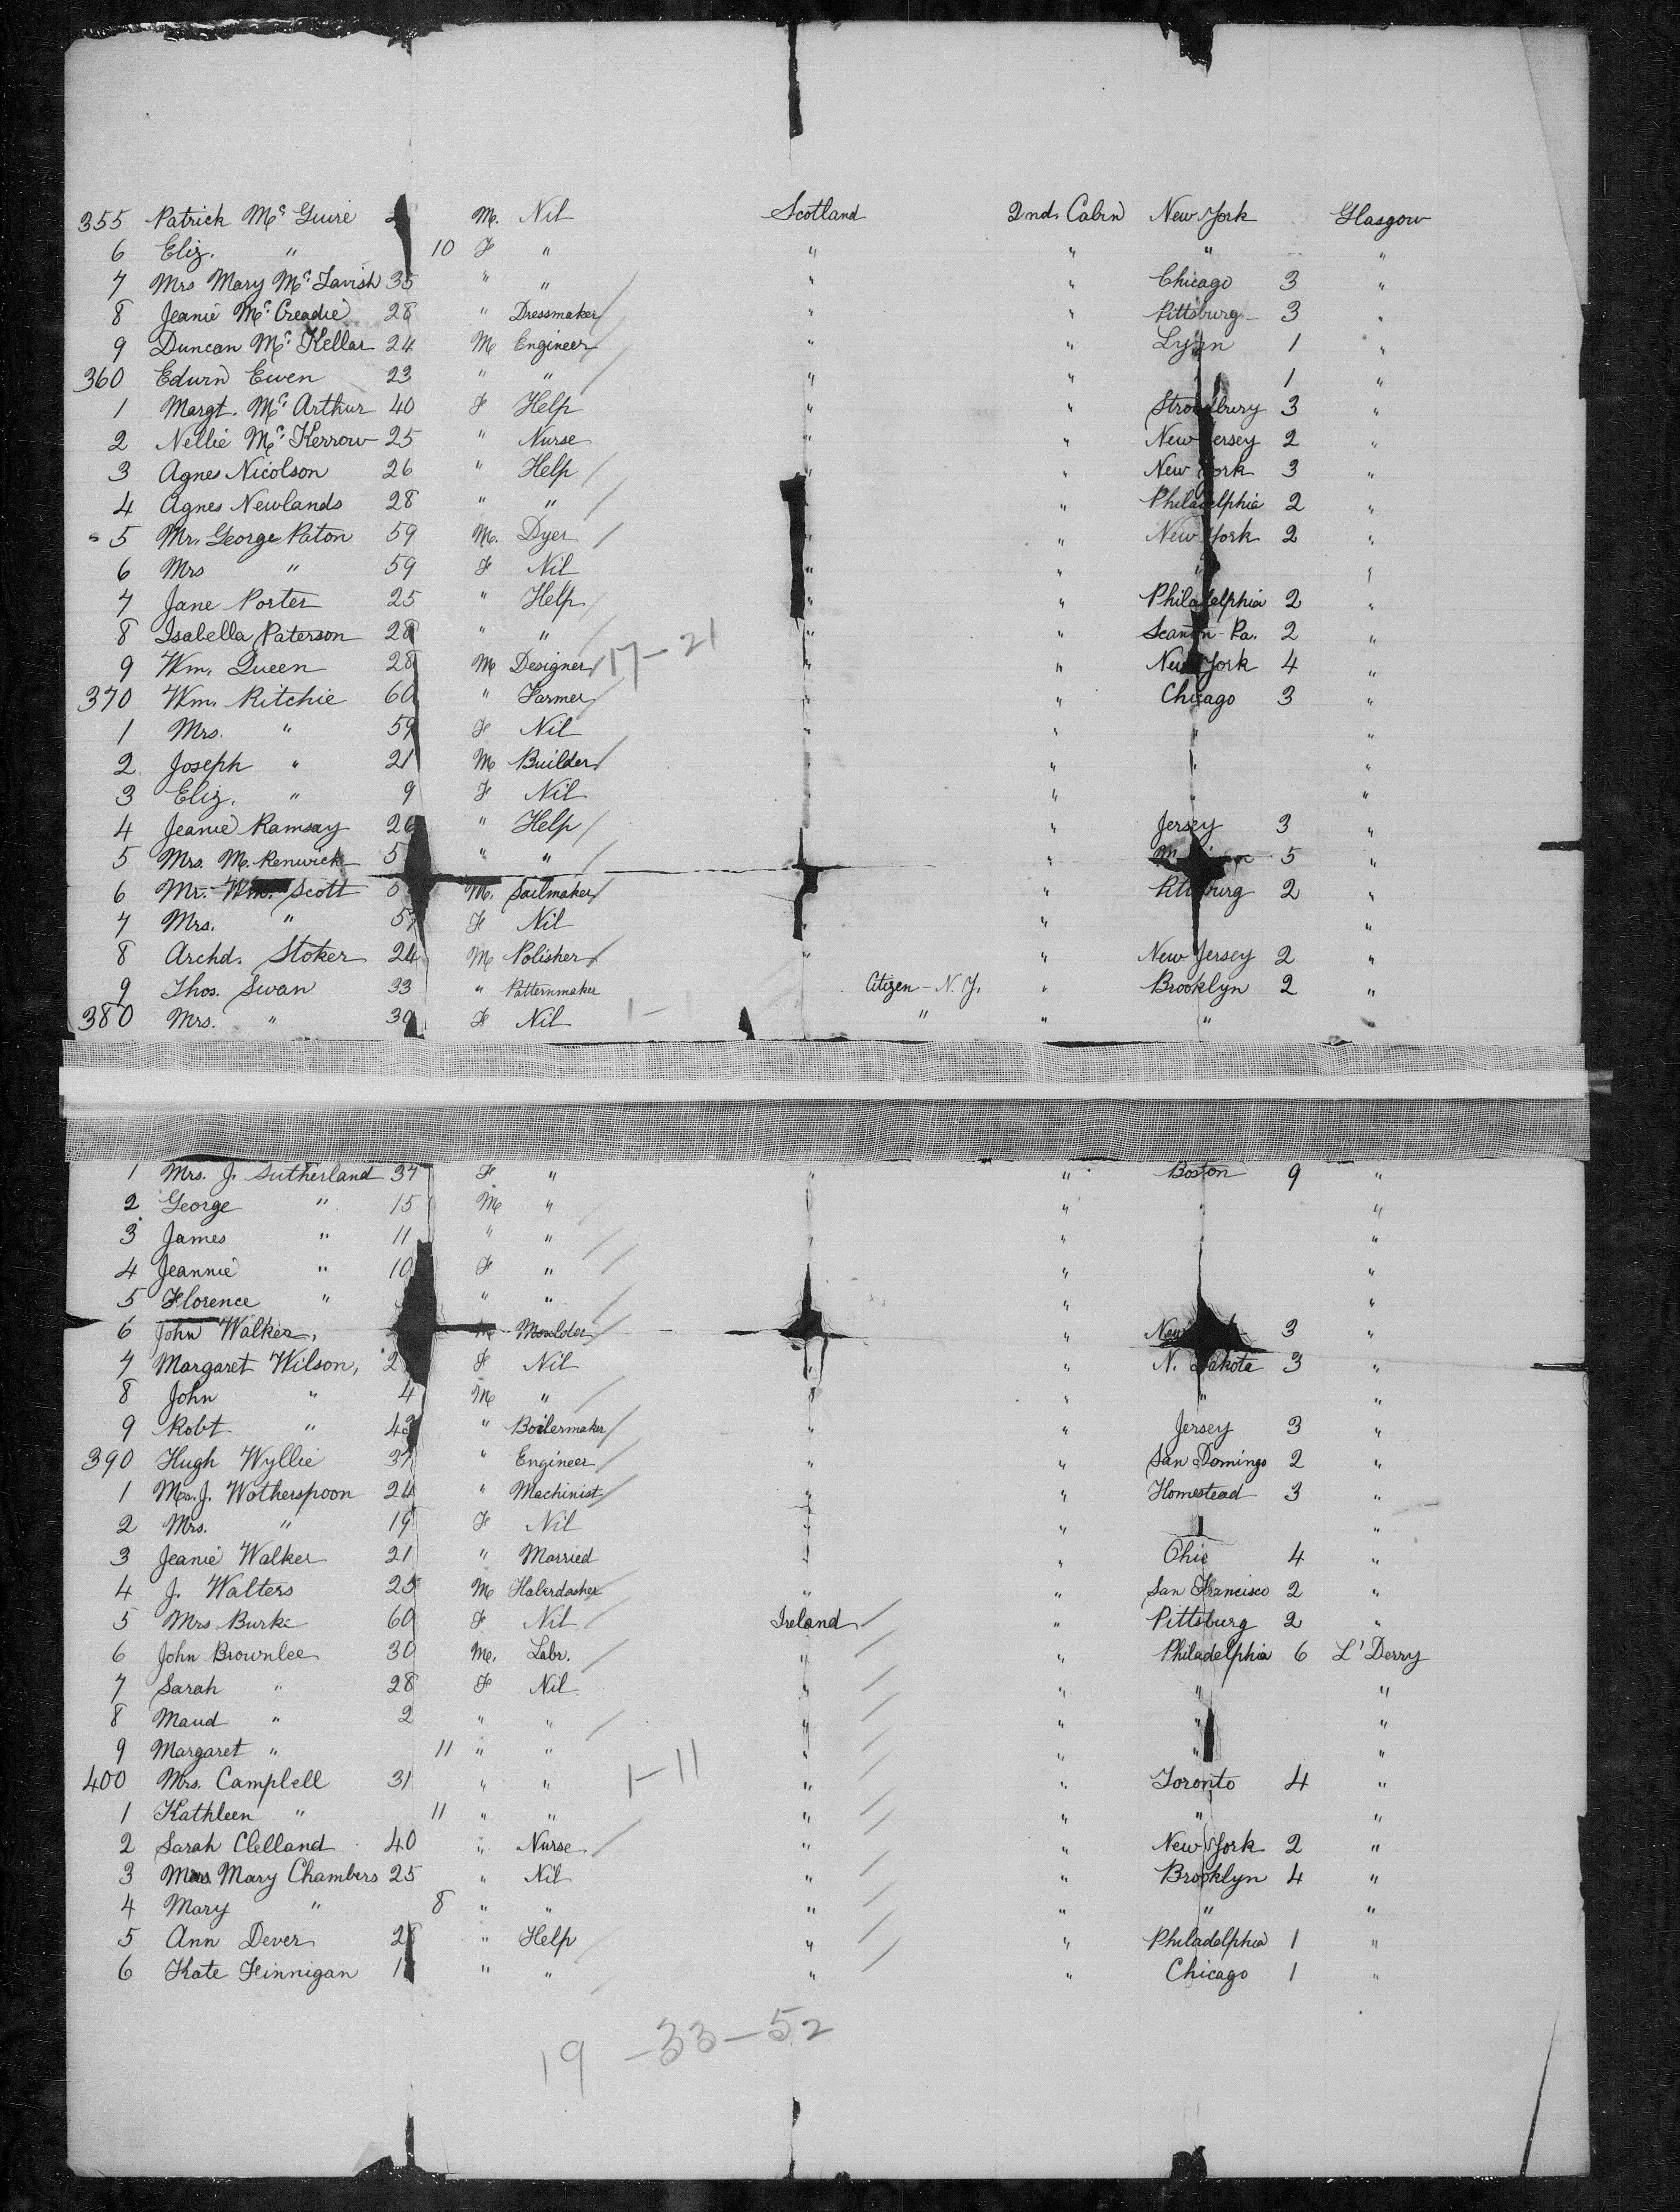 355 Patrick Mc Guire M. Nil Scotland 2nd. Cabin New York Glasgow
6 Eliz. " 10 F " " " " "
7 Mrs Mary Mc Tavish 35 " " " " Chicago 3 "
8 Jeanie Mc Creadie 28 " Dressmaker " " Pittsburg 3 "
9 Duncan Mc Kellar 24 M Engineer " " Lynn 1 "
360 Edwin Ewen 23 " " " " 1 "
1 Margt. Mc Arthur 40 F Help " " 3 "
2 Nellie Mc Kerrow 25 " Nurse " " New Jersey 2 "
3 Agnes Nicolson 26 " Help " " New York 3 "
4 Agnes Newlands 28 " " " Philadelphia 2 "
5 Mr. George Paton 59 M. Dyer " " New York 2 "
6 Mrs " 59 F Nil " " " "
7 Jane Porter 25 " Help " " Philadelphia 2 "
8 Isabella Paterson 28 " " " " Scanton Pa. 2 "
9 Wm. Queen 28 M Designer 17-21 " " New York 4 "
370 Wm. Ritchie 60 " Farmer " " Chicago 3 "
1 Mrs. " 59 F Nil " " " "
2 Joseph " 21 M Builder " " " "
3 Eliz. " 9 F Nil " " " "
4 Jeanie Ramsay 26 " Help " " Jersey 3 "
5 Mrs. M. Renwick 5 " " " " 5 "
6 Mr. Wm. Scott M. Sailmaker " Pittsburg 2 "
7 Mrs. " 57 F Nil " " "
8 Archd. Stoker 24 M Polisher " " New Jersey 2 "
9 Thos. Swan 33 " Patternmaker Citizen - N.Y. " Brooklyn 2 "
380 Mrs. " 30 F Nil 1-1 " " " "
1 Mrs. J. Sutherland 37 F " " " Boston 9 "
2 George " 15 M " " " " "
3 James " 11 " " " " "
4 Jeannie " 10 F " " " "
5 Florence " " " " "
6 John Walker, M Moulder " 3 "
7 Margaret Wilson, 2 F Nil " " N. Dakota 3 "
8 John " 4 M " " " " "
9 Robt " 43 " Boilermaker " " Jersey 3 "
390 Hugh Wyllie 37 " Engineer " " San Domingo 2 "
1 Mr. J. Wotherspoon 24 " Machinist " " Homestead 3 "
2 Mrs. " 19 F Nil " " "
3 Jeanie Walker 21 " Married " " Ohio 4 "
4 J. Walters 25 M Haberdasher " " San Francisco 2 "
5 Mrs Burke 60 F Nil Ireland " Pittsburg 2 "
6 John Brownlee 30 M. Labr. " " Philadelphia 6 L'Derry
7 Sarah " 28 F Nil " " " "
8 Maud " 2 " " " " " "
9 Margaret " 11 " " " " " "
400 Mrs. Campbell 31 " " 1-11 " " Toronto 4 "
1 Kathleen " 11 " " " " " "
2 Sarah Clelland 40 " Nurse " " New York 2 "
3 Mrs Mary Chambers 25 " Nil " " Brooklyn 4 "
4 Mary " 8 " " " " " "
5 Ann Dever 28 " Help " " Philadelphia 1 "
6 Kate Finnigan 1 " " " " Chicago 1 "
19 - 33 - 52